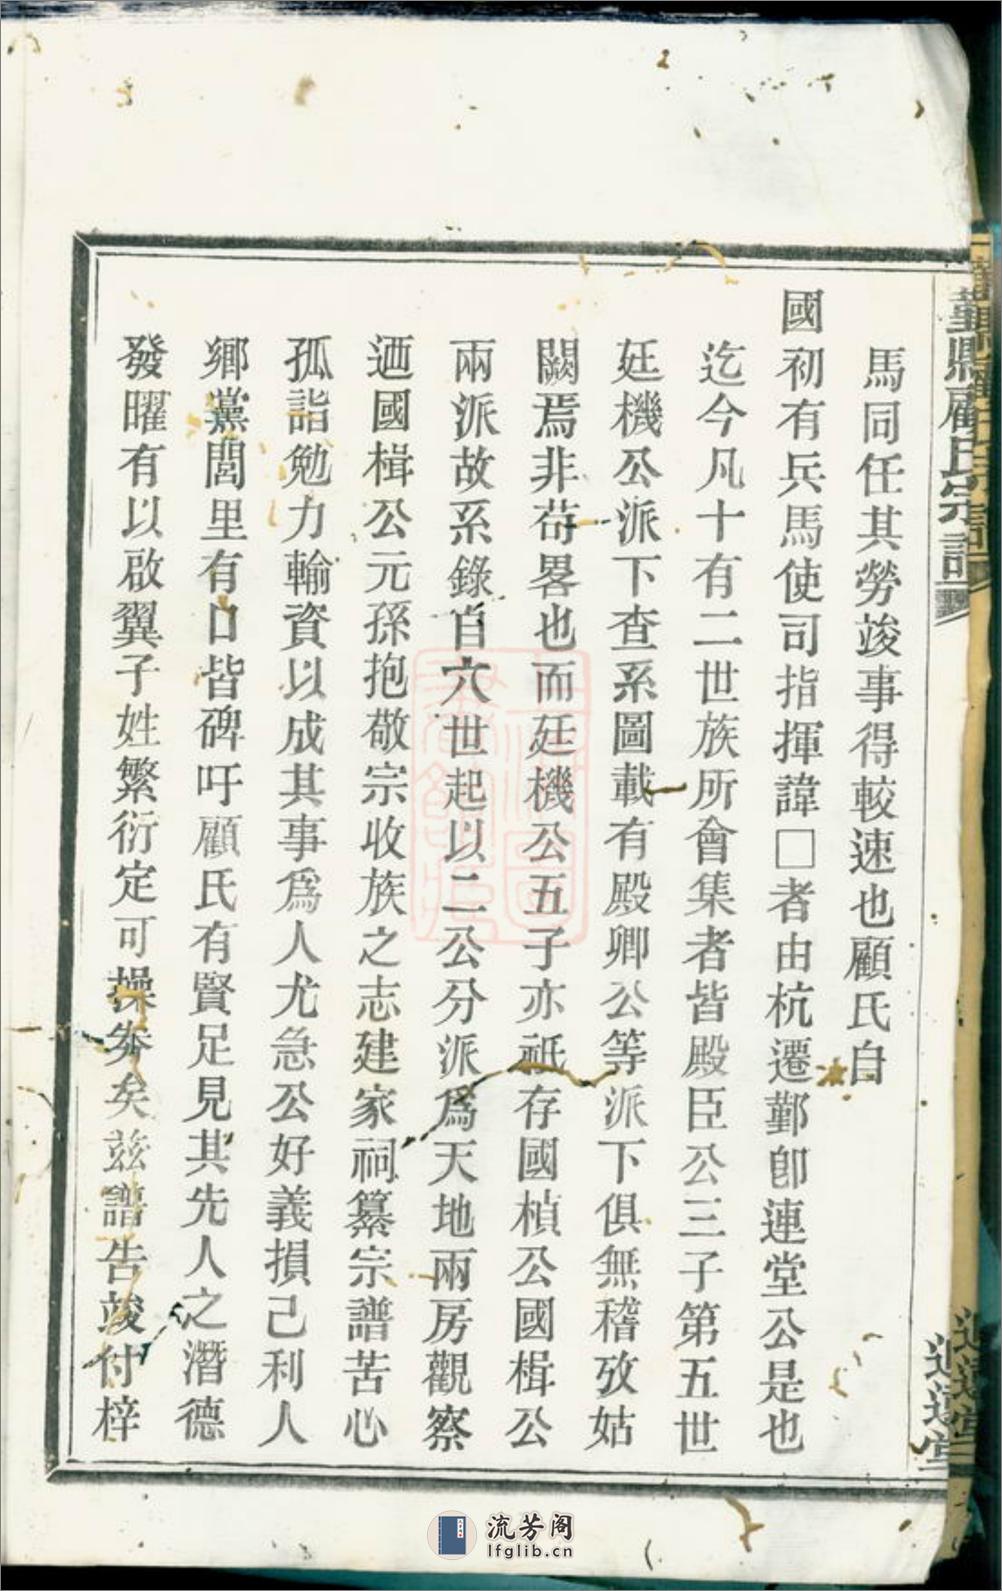 馬同任其勞竣事得較速也顧氏自
國初有兵馬使司指揮諱□者由杭遷鄞卽連堂公是也
迄今凡十有二世族所會集者皆殿臣公三子第五世
廷機公派下查系圖載有殿卿公等派下俱無稽攷姑
闕焉非苟畧也而廷機公五子亦祇存國楨公國楫公
兩派故系錄自六世起以二公分派爲天地兩房觀察
迺國楫公元孫抱敬宗收族之志建家祠纂宗譜苦心
孤詣勉力輸資以成其事爲人尤急公好義損己利人
鄉黨閭里有口皆碑吁顧氏有賢足見其先人之潛德
發曜有以啟翼子姓繁衍定可操券矣茲譜告竣付梓
縣顧氏宗譜
追遠堂
流芳阁
lfglib.cn